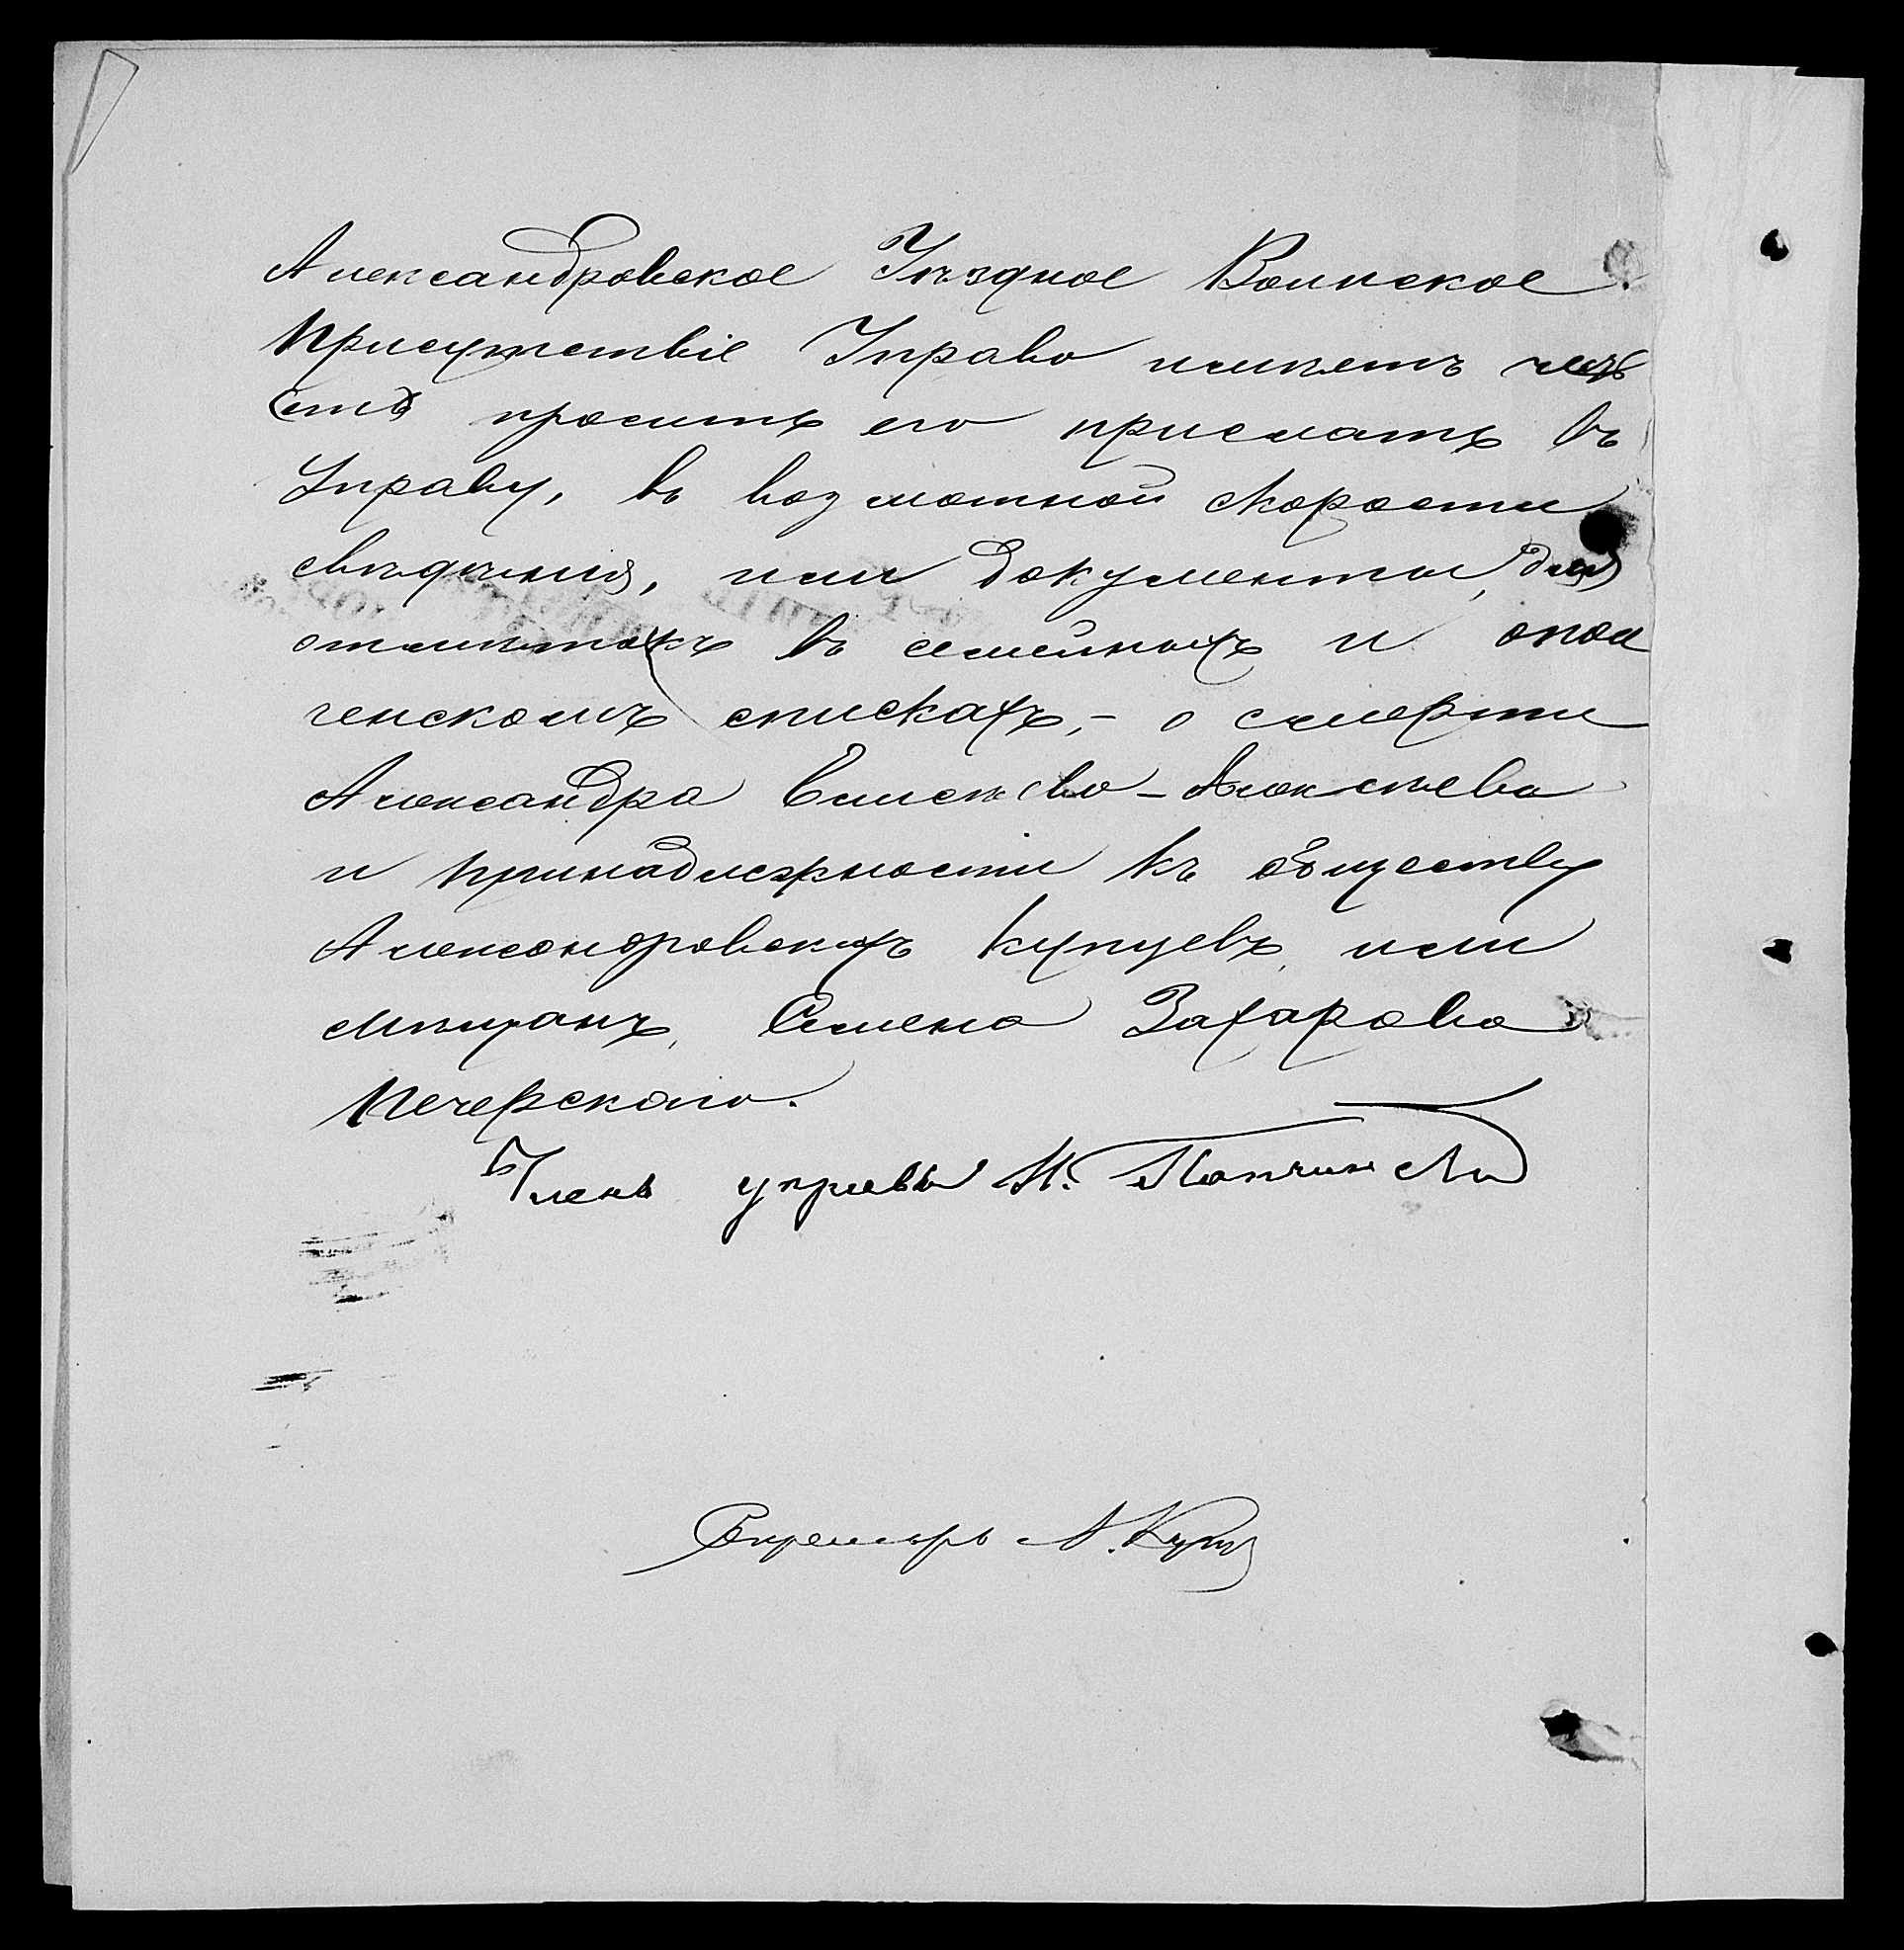 Александровское Уѣздное Воинское
Присутствіе Управа имѣетъ че
сть просить его прислать въ
Управу, въ возможной скорости
свѣдѣнія, или документы, для
отмѣтокъ въ семейныхъ и опол
ченскомъ спискахъ, - о смерти
Александра Алексѣева
и принадлежности къ обществу
Александровскихъ купцевъ, или
мѣщанъ, Семена Захарова
Печерскаго.
Членъ управы
Секретарь А.